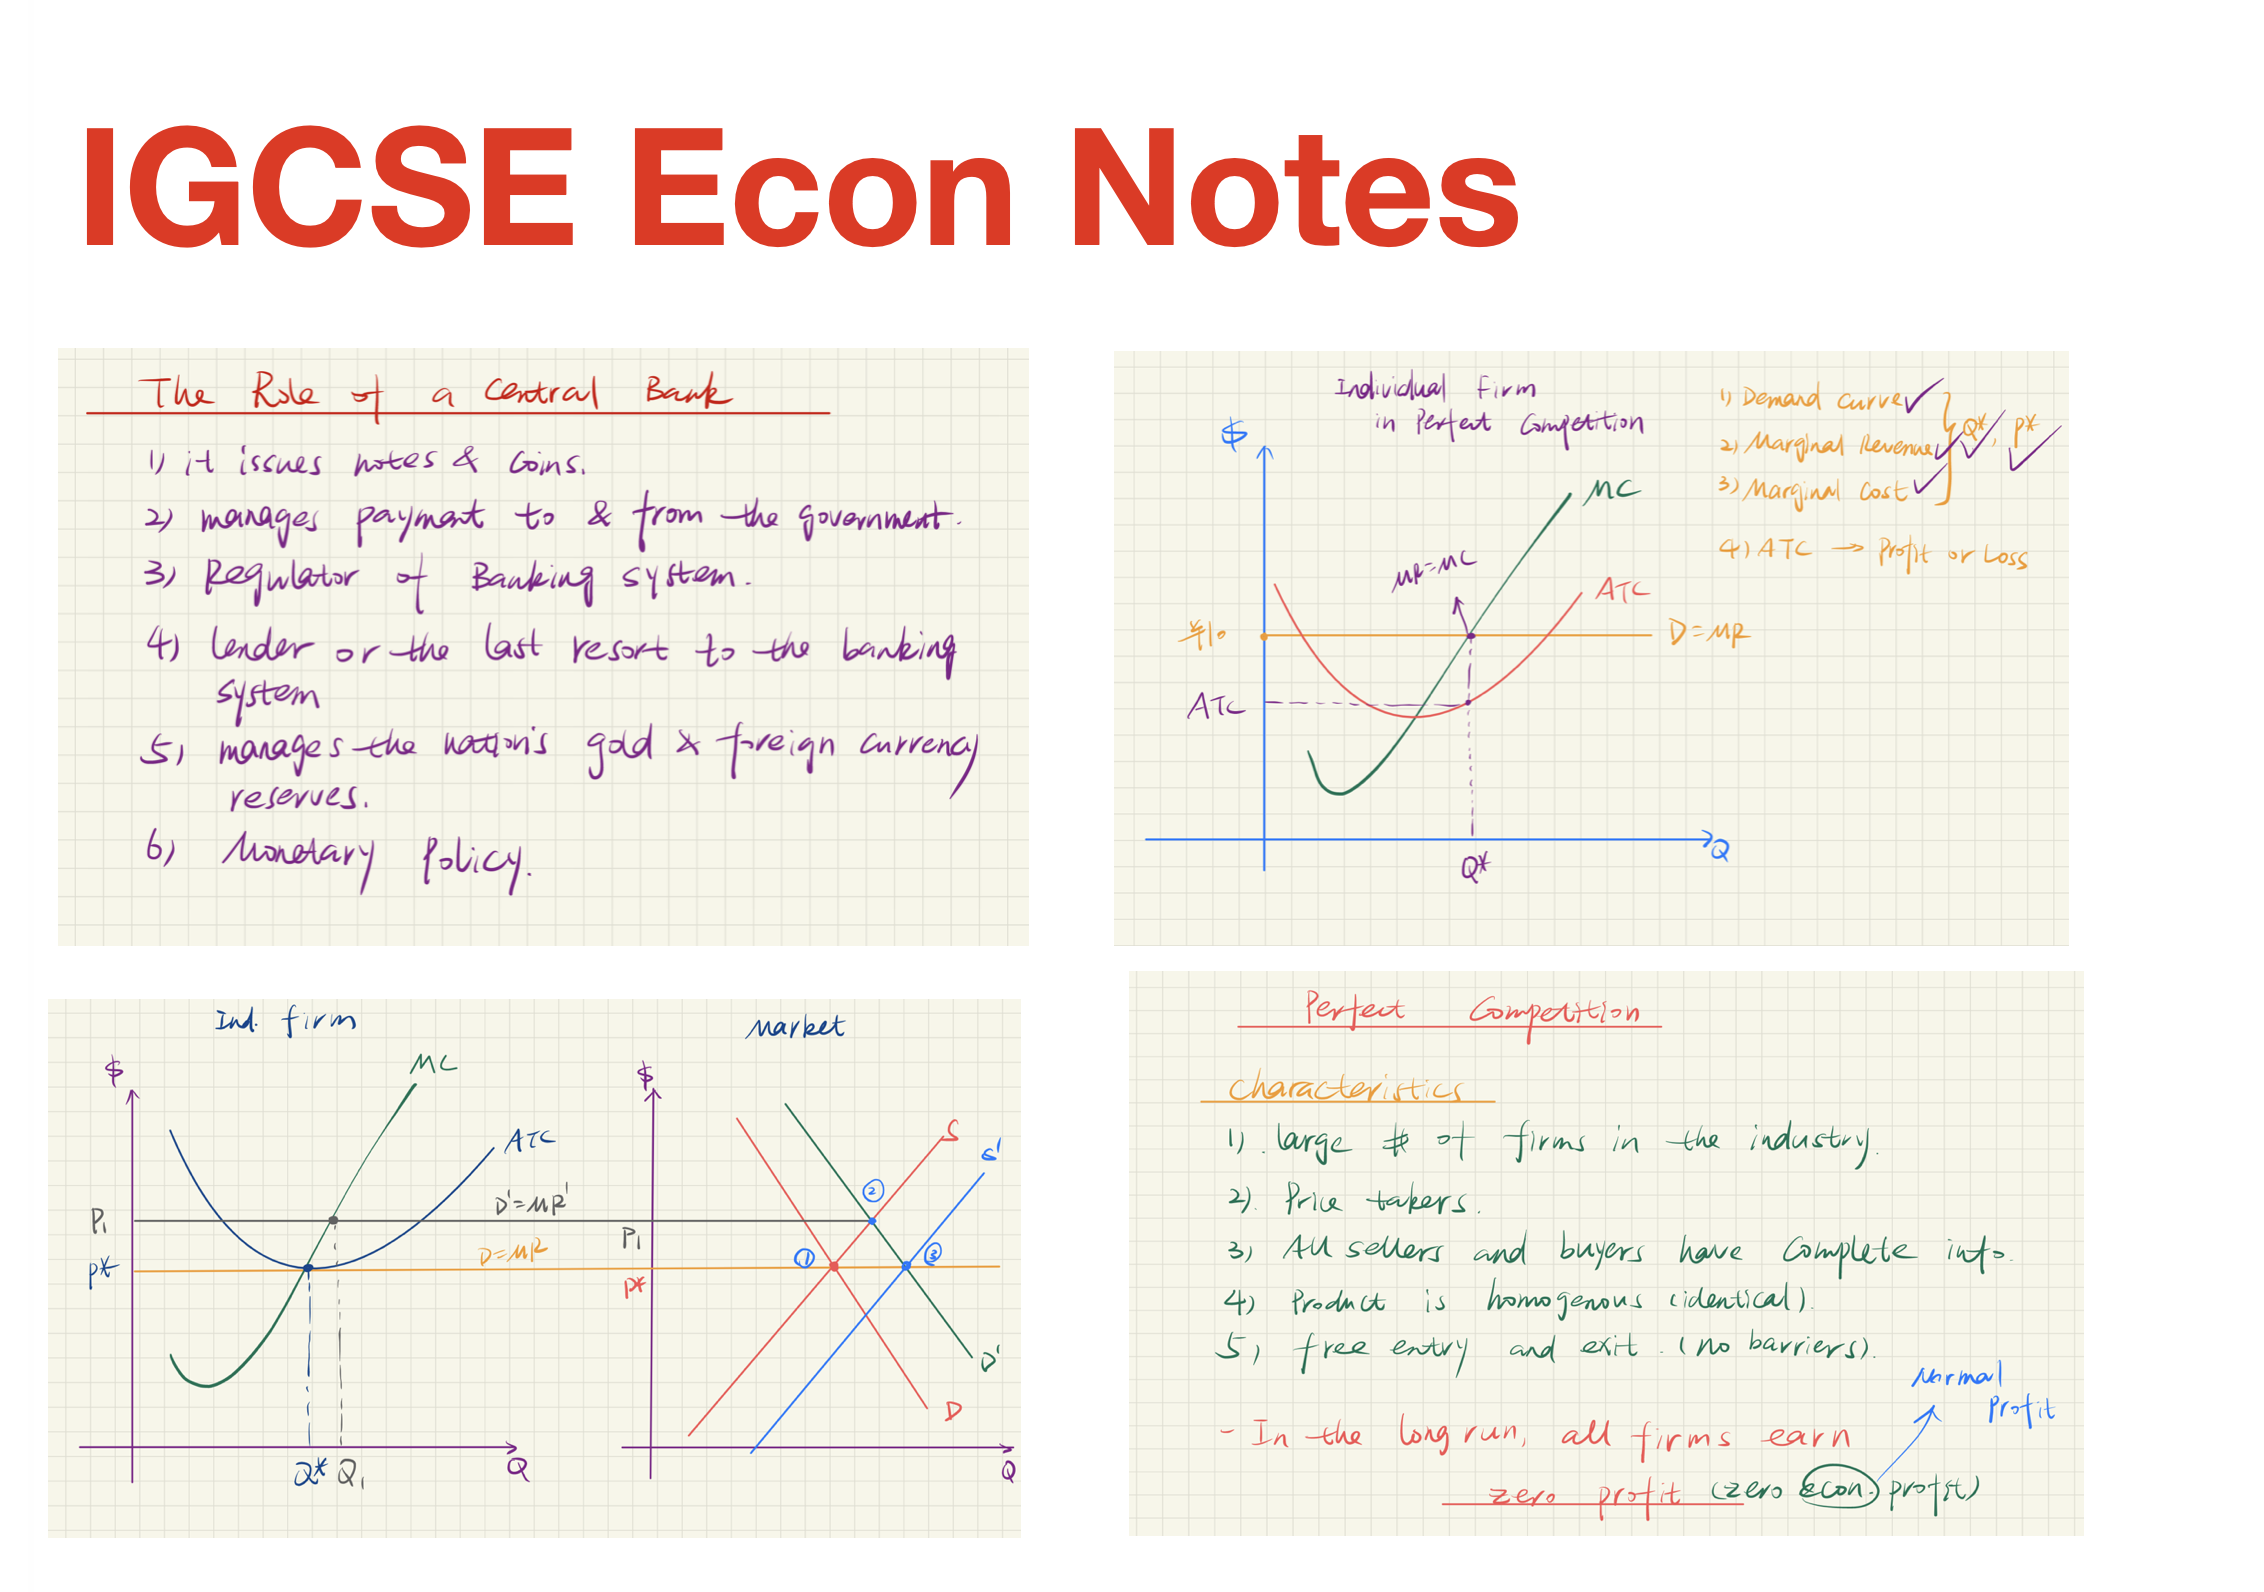 IGCSE Econ Notes
The Role of a Central Bank
1) it issues notes & Coins.
2) manages payment to & from the government.
3) Regulator of Banking system.
4) lender or the last resort to the banking
system
5) manages the nation's gold & foreign currency
reserves.
6) Monetary Policy.
Individual Firm
in Perfect Competition
$
MC
MR=MC
ATC
¥10
D=MR
ATC
Q
Q*
1) Demand Curve
2) Marginal Revenue
3) Marginal Cost
Q*, P*
4) ATC → Profit or Loss
Ind. firm
$
MC
ATC
D'=MR'
P₁
D=MR
P*
Q* Q₁
Q
Market
$
S
S'
②
P₁
① ③
P*
D'
D
Q
Perfect Competition
Characteristics
1). large # of firms in the industry.
2). Price takers.
3) All sellers and buyers have Complete info.
4) Product is homogenous (identical).
5) free entry and exit. (no barriers).
Normal
Profit
- In the long run, all firms earn
zero profit (zero econ. profit)